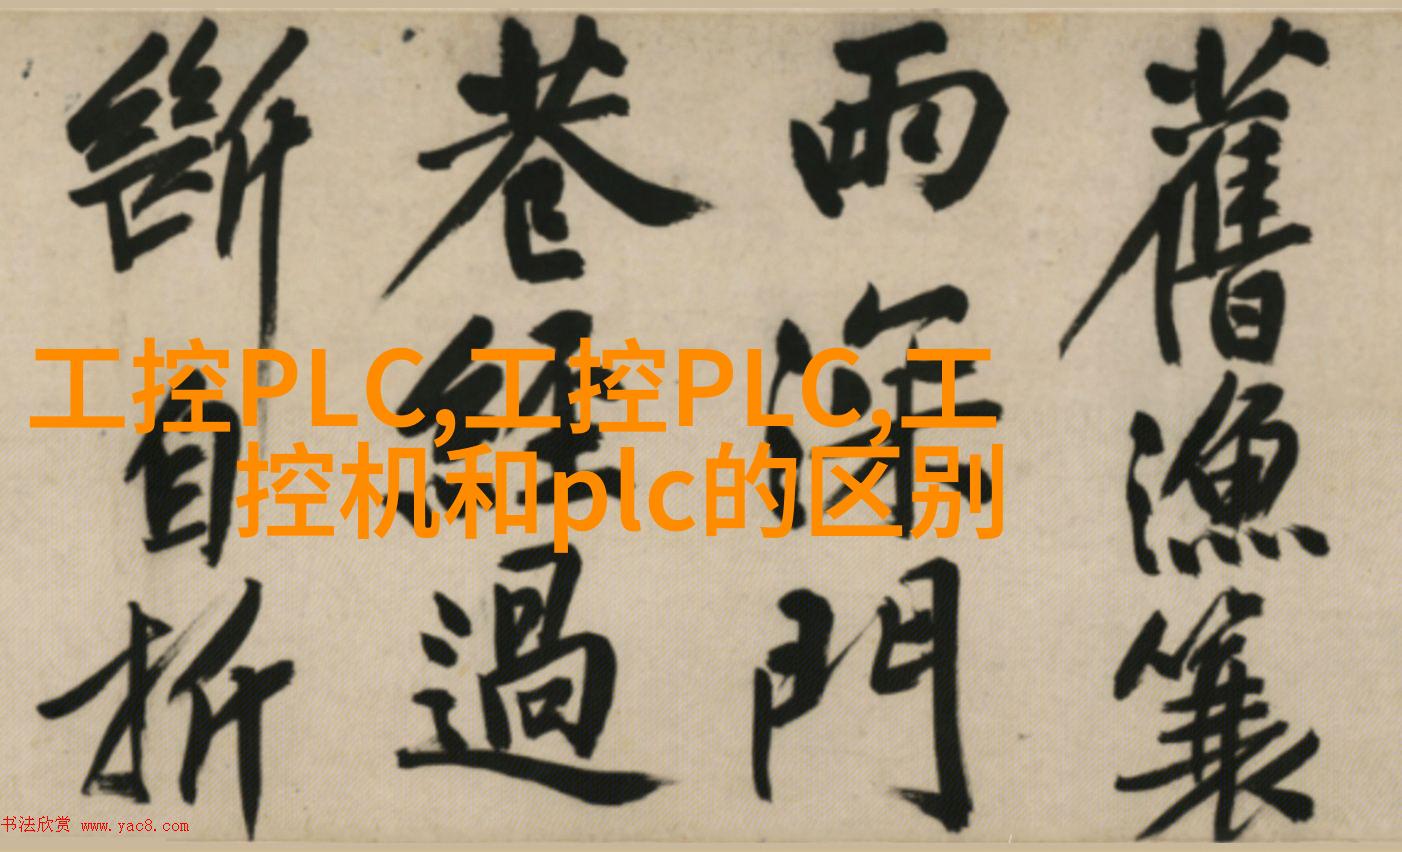 舊漁簑
雨深門
巷經過
斷自折
工控PLC,工控PLC,工
控机和plc的区别
书法欣赏 www.yac8.com